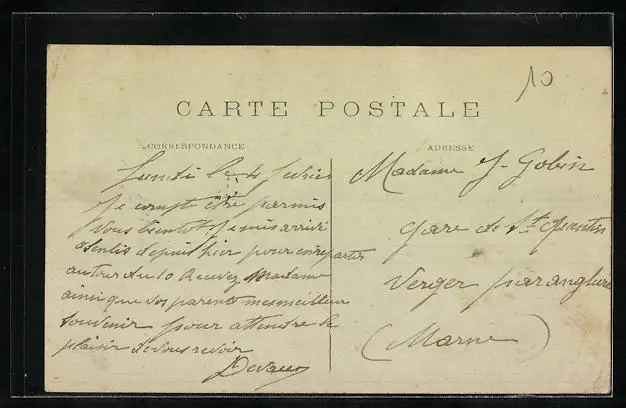 10
CARTE POSTALE
CORRESPONDANCE
ADRESSE
Lundi le 4 fevrier
Je compte être parmis
Vous bientot Je suis arrivé
a Senlis depuis hier pour en repartir
autour du 10 Recevez Madame
ainsi que vos parents mes meilleurs
Souvenir pour attendre le
plaisir de vous revoir
Devaux
Madame J. Gobin
gare de St Quentin
Verger par anglure
(Marne)